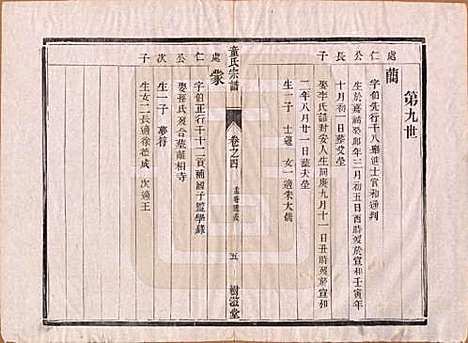 第九世
處仁公長子
蘭
字伯先行千八舉進士官和通判
生於嘉祐癸卯年三月初五日酉時歿於宣和壬寅年
十月初一日葬父塋
娶李氏諡封安人生同庚九月十一日丑時歿於宣和
二年八月廿一日葬夫塋
生一子 士遜 女一適朱大儒
處仁公次子
蒙
字伯正行千十二貢補國子監學錄
娶孫氏歿合葬龍相寺
生一子 夢行
生女二長適徐若成 次適王
童氏宗譜
卷之四
五
樹滋堂